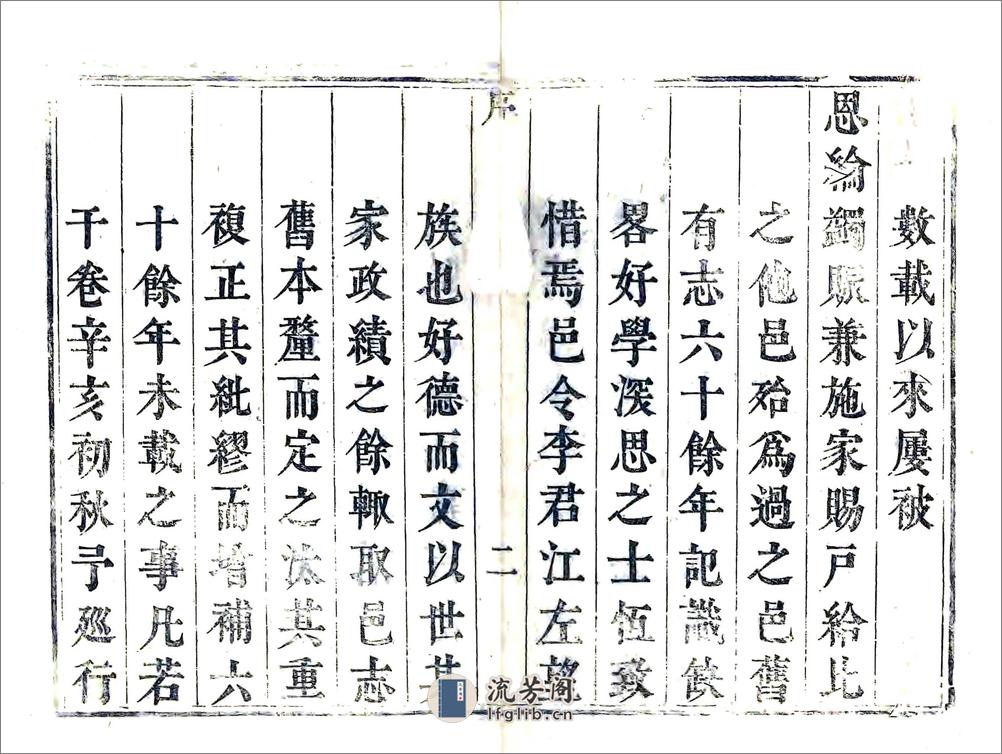 數載以來屢被
恩綸蠲賑兼施家賜戸給比
之他邑殆爲過之邑舊
有志六十餘年記識佚
畧好學深思之士恆致
惜焉邑令李君江左望
序
二
族也好德而文以世其
家政績之餘輙取邑志
舊本釐而定之汰其重
複正其紕繆而增補六
十餘年未載之事凡若
干卷辛亥初秋予廵行
流芳阁
lfglib.cn